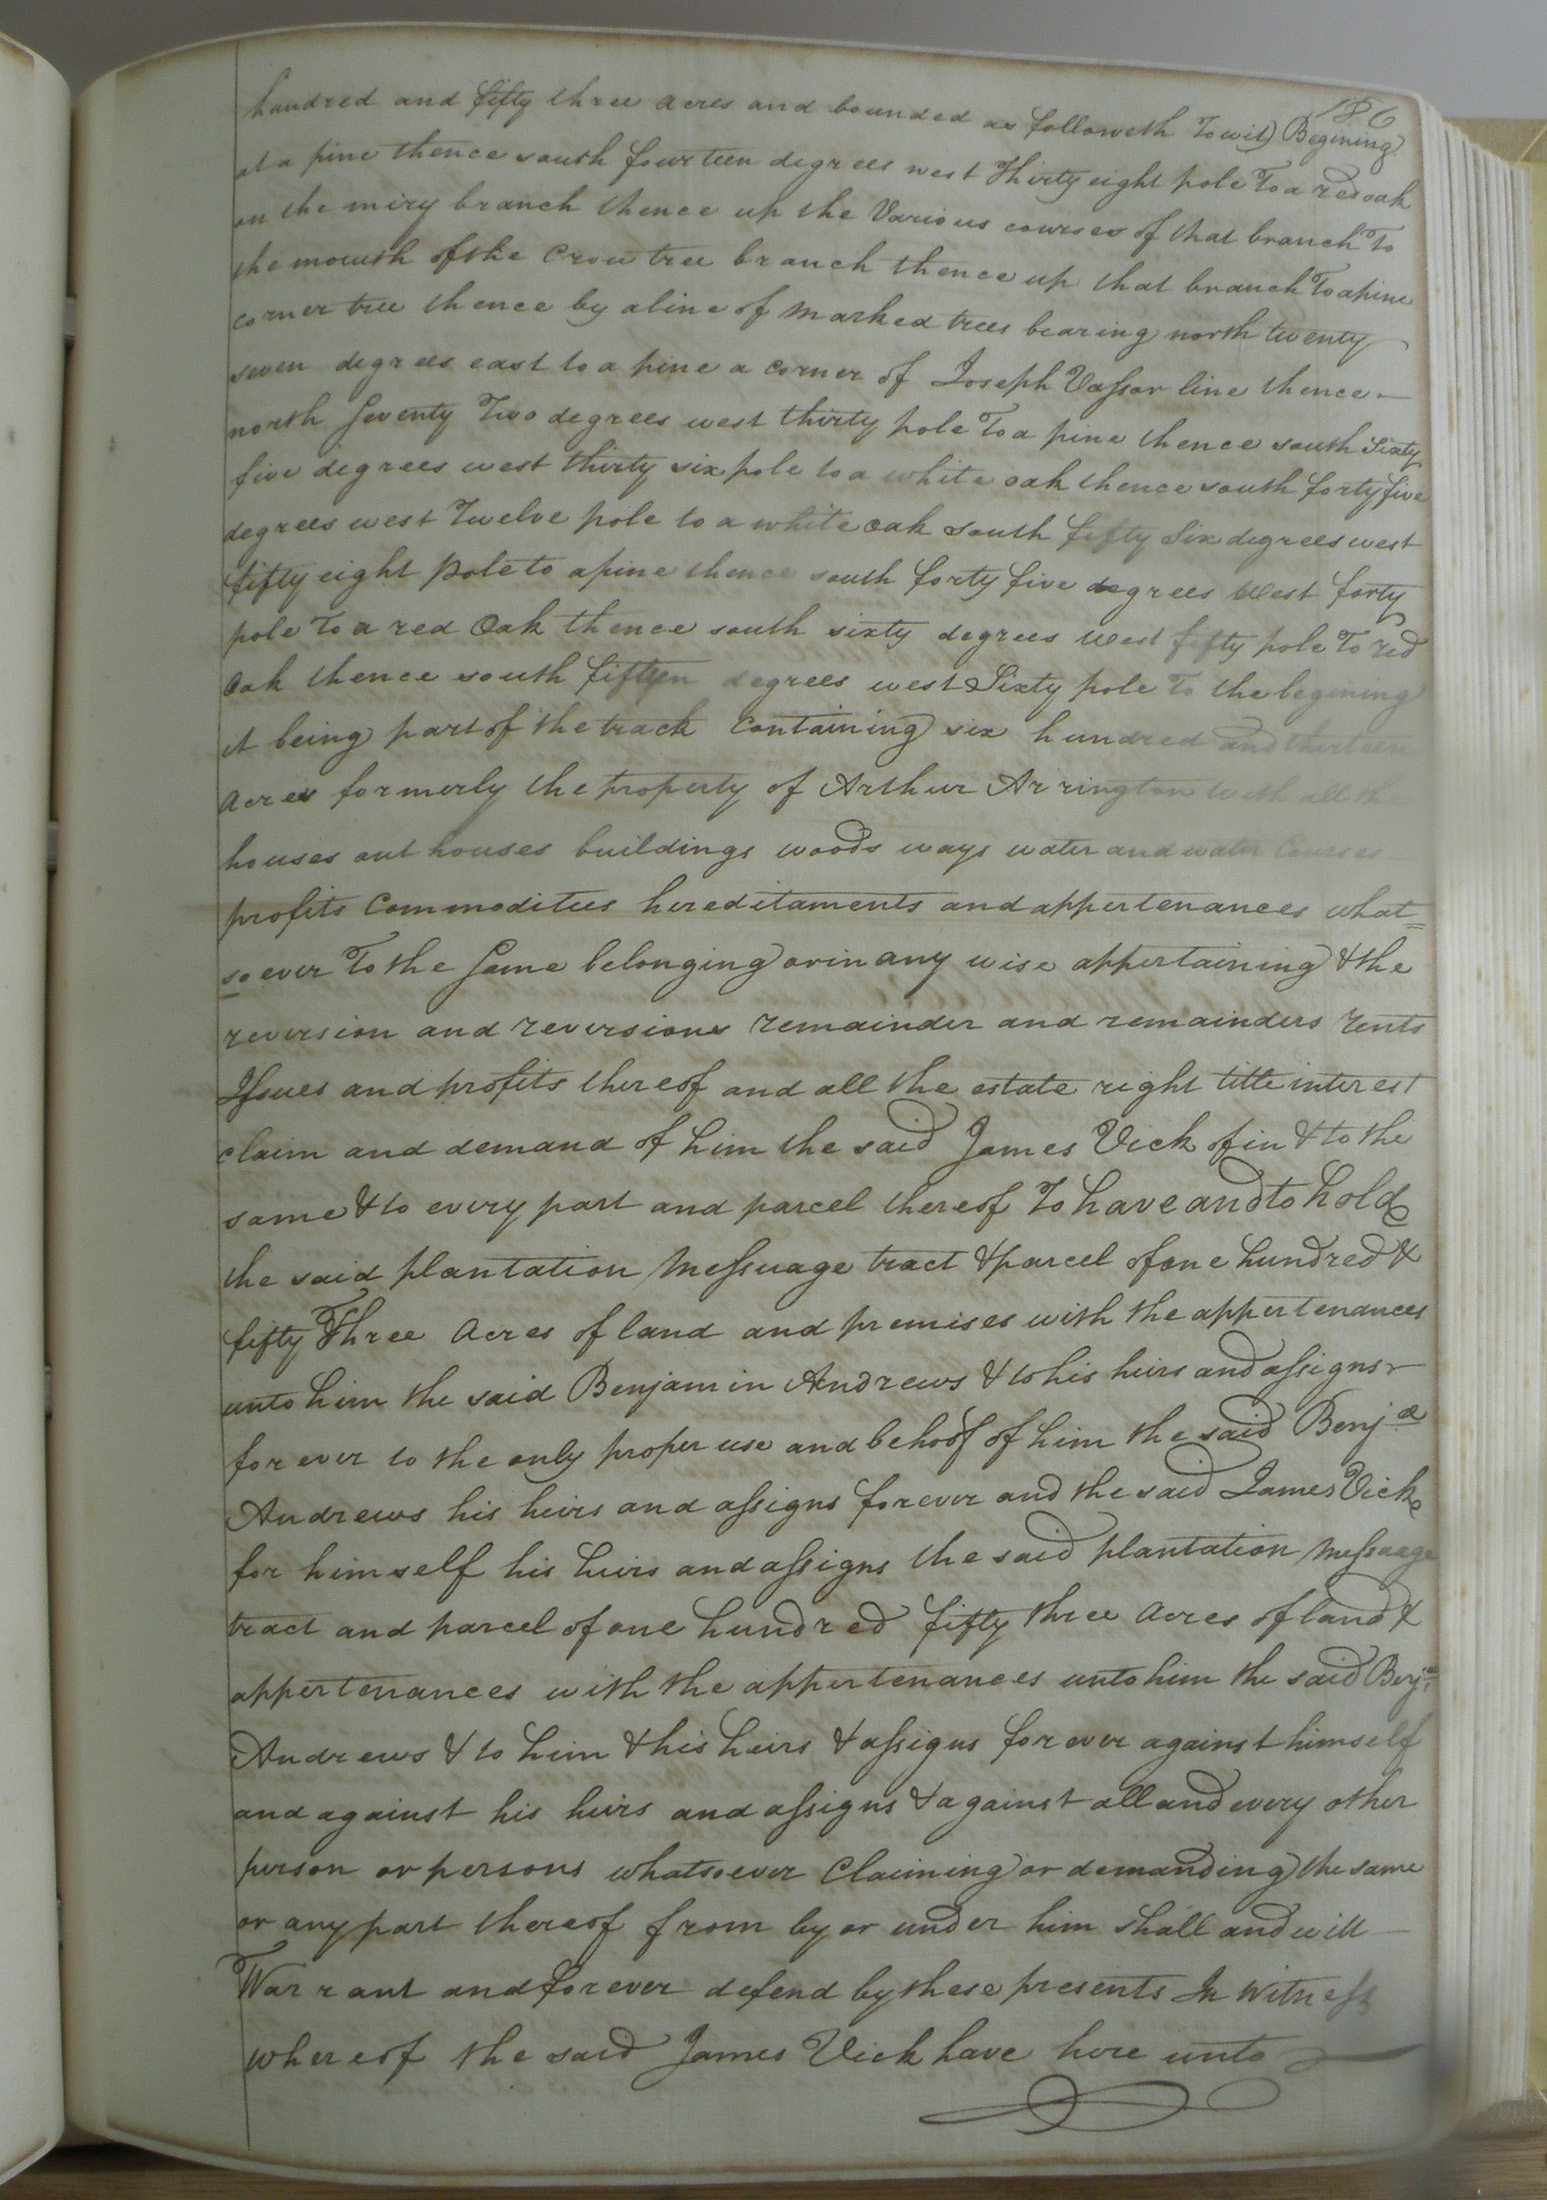 186
hundred and fifty three acres and bounded as followeth Towit) Begining
at a pine thence south fourteen degrees west Thirty eight pole To a red oak
on the miry branch thence up the Various courses of that branch To
the mouth of the Crow tree branch thence up that branch To a pine
corner tree thence by a line of marked trees bearing north twenty
seven degrees east to a pine a corner of Joseph Vassor line thence
north Seventy Two degrees west thirty pole To a pine thence south Sixty
five degrees west thirty six pole to a white oak thence south forty five
degrees west Twelve pole to a white oak south fifty Six degrees west
fifty eight pole to a pine thence south forty five degrees west forty
pole To a red Oak thence south sixty degrees west fifty pole To red
Oak thence south fifteen degrees west Sixty pole To the begining
it being part of the track containing six hundred and thirteen
Acres formerly the property of Arthur Arrington with all the
houses out houses buildings woods ways water and water Courses
profits Commodities hereditaments and appertenances what=
soever To the Same belonging or in any wise appertaining & the
reversion and reversions remainder and remainders rents
Issues and profits thereof and all the estate right title interest
claim and demand of him the said James Vick of in & to the
same & to every part and parcel thereof To have and to hold
the said plantation Messuage tract & parcel of one hundred &
fifty Three Acres of land and premises with the appertenances
unto him the said Benjamin Andrews & to his heirs and assigns
for ever to the only proper use and behoof of him the said Benja
Andrews his heirs and assigns forever and the said James Vick
for himself his heirs and assigns the said plantation Messuage
tract and parcel of one hundred fifty three Acres of land &
appertenances with the appertenances unto him the said Benja
Andrews & to him & his heirs & assigns for ever against himself
and against his heirs and assigns & against all and every other
person or persons whatsoever Claiming or demanding the same
or any part thereof from by or under him shall and will
Warrant and forever defend by these presents In Witness
whereof the said James Vick have here unto